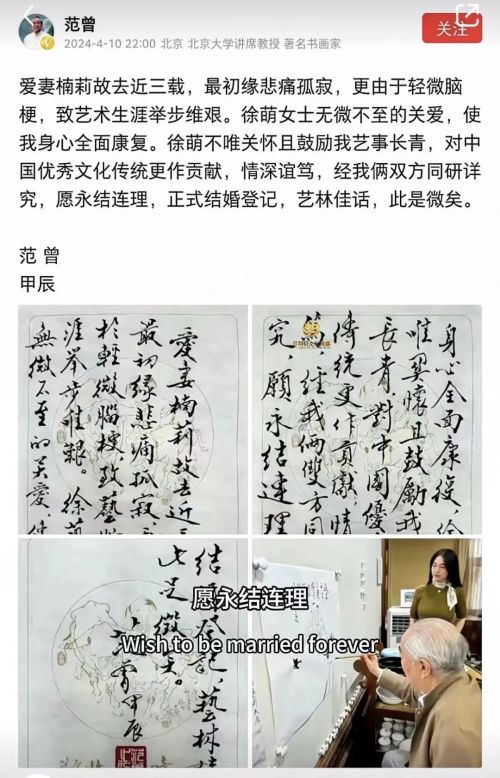 范曾
2024-4-10 22:00 北京 北京大学讲席教授 著名书画家
关注
爱妻楠莉故去近三载，最初缘悲痛孤寂，更由于轻微脑
梗，致艺术生涯举步维艰。徐萌女士无微不至的关爱，使
我身心全面康复。徐萌不唯关怀且鼓励我艺事长青，对中
国优秀文化传统更作贡献，情深谊笃，经我俩双方同研详
究，愿永结连理，正式结婚登记，艺林佳话，此是微矣。
范 曾
甲辰
愛妻楠莉故去近三
最初緣悲痛孤寂，更
於輕微腦梗，致藝術
涯舉步維艱。徐萌
無微不至的关愛，使
身心全面康復，徐
唯関懷且鼓勵我
長青，對中國優
傳統更作貢獻，情
篤，經我倆雙方同
究，願永结連理
结登記，藝林佳
此是微矣。
甲辰
愿永结连理
Wish to be married forever